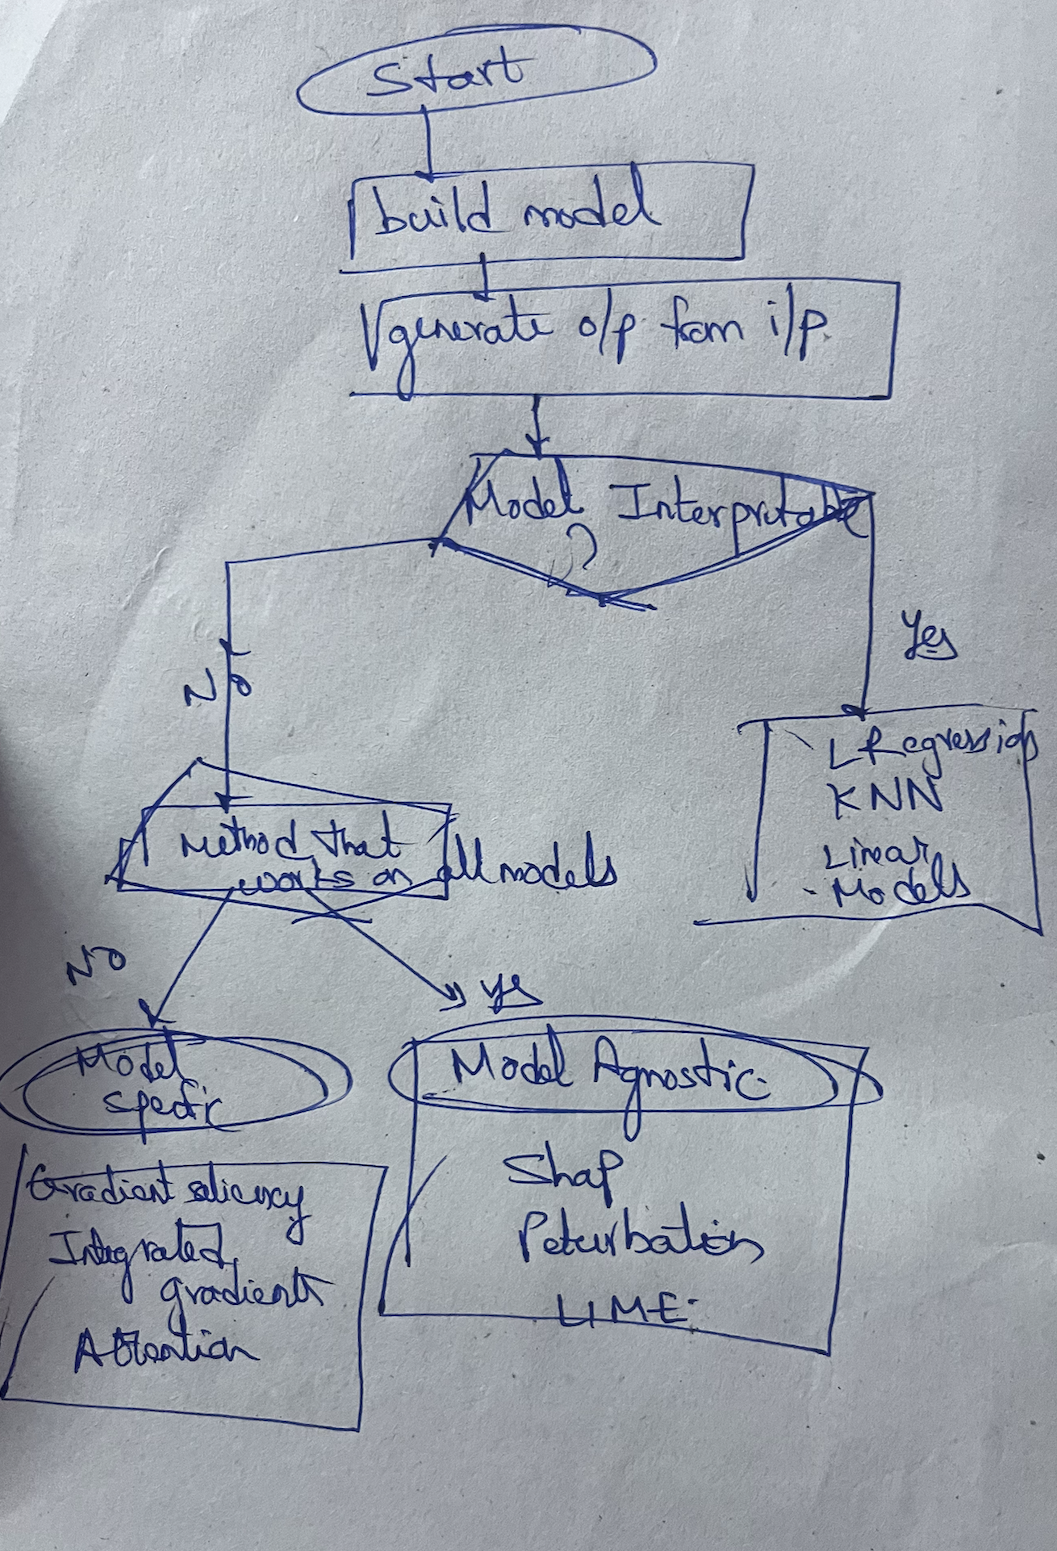 Start
build model
generate o/p from i/p.
Model Interpretable
?
Yes
No
L Regression
KNN
Linear
- Models
Method that
works on all models
No
yes
Model
specific
Model Agnostic
Gradient saliency
Integrated
gradients
Attention
Shap
Peturbation
LIME